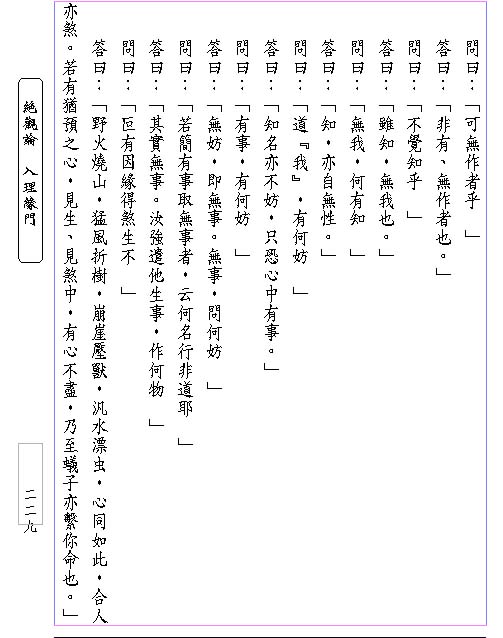 問曰：「可無作者乎」
答曰：「非有、無作者也。」
問曰：「不覺知乎」
答曰：「雖知，無我也。」
問曰：「無我，何有知」
答曰：「知，亦自無性。」
問曰：「道『我』，有何妨」
答曰：「知名亦不妨，只恐心中有事。」
問曰：「有事，有何妨」
答曰：「無妨，即無事。無事，問何妨」
問曰：「若簡有事取無事者，云何名行非道耶」
答曰：「其實無事。汝強遣他生事，作何物」
問曰：「叵有因緣得煞生不」
答曰：「野火燒山，猛風折樹，崩崖壓獸，汎水漂虫，心同如此，合人
亦煞。若有猶預之心，見生、見煞中，有心不盡，乃至蟻子亦繫你命也。」
絕觀論　入理緣門
二二九